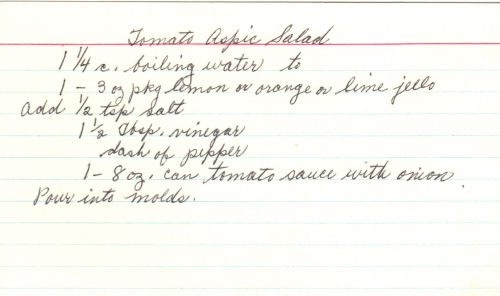 Tomato Aspic Salad
1 1/4 c. boiling water to
1 - 3 oz pkg lemon or orange or lime jello
Add 1/2 tsp salt
1 1/2 Tbsp. vinegar
dash of pepper
1 - 8 oz. can tomato sauce with onion.
Pour into molds.